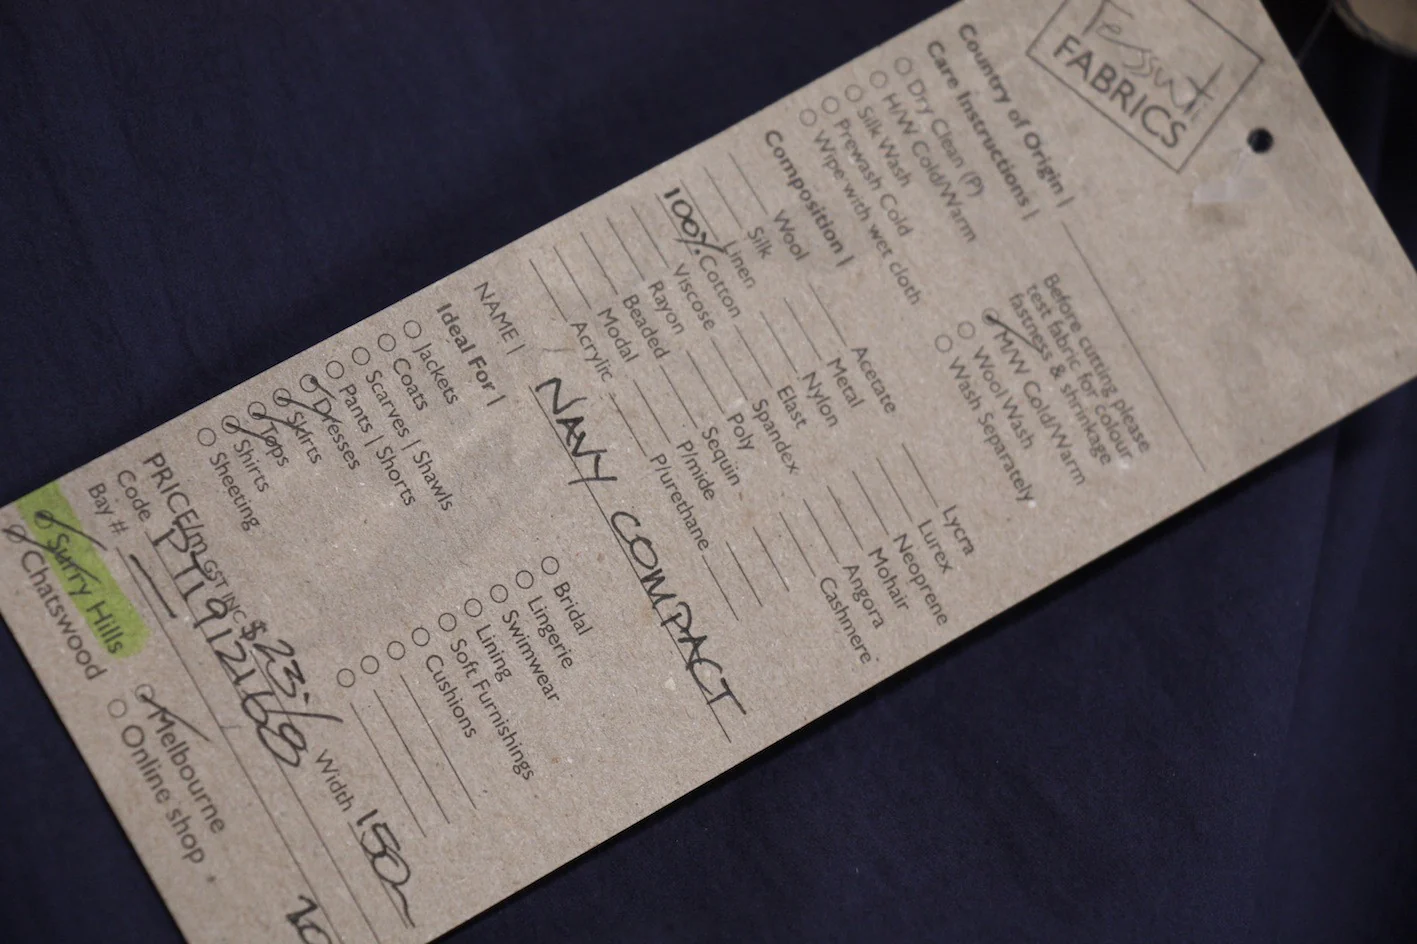 Tessuti
FABRICS
Country of Origin |
Care Instructions |
Before cutting please
test fabric for colour
fastness & shrinkage
Dry Clean (P)
H/W Cold/Warm
Silk Wash
Prewash Cold
Wipe with wet cloth
M/W Cold/Warm
Wool Wash
Wash Separately
Composition |
Wool
Silk
Linen
100% Cotton
Viscose
Rayon
Beaded
Modal
Acrylic
Acetate
Metal
Nylon
Elast
Spandex
Poly
Sequin
P/mide
P/urethane
Lycra
Lurex
Neoprene
Mohair
Angora
Cashmere
NAME | NAVY COMPACT
Ideal For |
Jackets
Coats
Scarves | Shawls
Pants | Shorts
Dresses
Skirts
Tops
Shirts
Sheeting
Bridal
Lingerie
Swimwear
Lining
Soft Furnishings
Cushions
PRICE/m GST INC $23.-/ Width 150
Code PT1912168
Bay # —
Surry Hills
Chatswood
Melbourne
Online shop